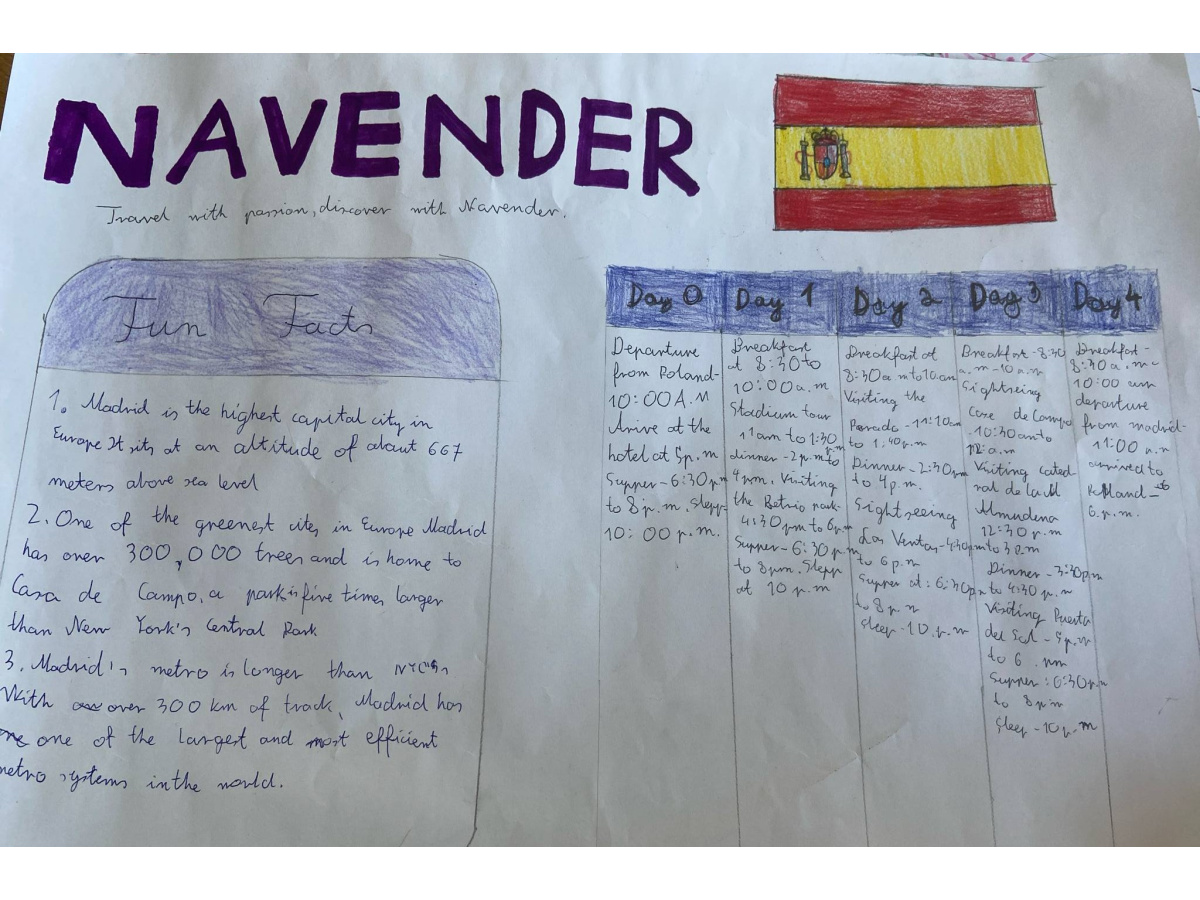 NAVENDER
Travel with passion, discover with Navender.
Fun Facts
1. Madrid is the highest capital city in
Europe It sits at an altitude of about 667
meters above sea level
2. One of the greenest citys in Europe Madrid
has over 300,000 trees and is home to
Casa de Campo, a park is five times larger
than New York's Central Park
3. Madrid's metro is longer than NYC's
With over 300 km of track, Madrid has
one of the largest and most efficient
metro systems in the world.
Day 0
Departure
from Poland-
10:00A.M
Arive at the
hotel at 5p.m
Supper-6:30pm
to 8p.m. Slepp
10:00 p.m.
Day 1
Breakfast
at 8:30 to
10:00a.m
Stadium tour
11am to 1:30
dinner-2p.m to
4p.m. Visiting
the Betrio park-
4:30pm to 6pm
Supper-6:30pm
to 8pm. Slepp
at 10 p.m
Day 2
Breakfast at
8:30a.m to 10.am
Visiting the
-11:10am
to 1.40p.m
Dinner-2:30pm
to 4p.m.
Sightseeing
Las Ventas-4:30pm
to 6p.m
Supper at: 6:30pm
to 8p.m
Sleep-10.p.m
Day 3
Breakfast-8:30
a.m-10a.m
Sightseing
Case de Campo
-10:30am to
12:a.m
Visiting cated
ral de la
Almudena
12:30p.m
to 3p.m
Dinner-3:30pm
to 4:30p.m
Visiting Puerta
del Sol-5p.m
to 6.pm
Supper:6:30pm
to 8p.m
Sleep-10p.m
Day 4
Breakfast-
8:30a.m-
10:00 am
departure
from madrid-
11:00 a.m
arrived to
-to
6.p.m.